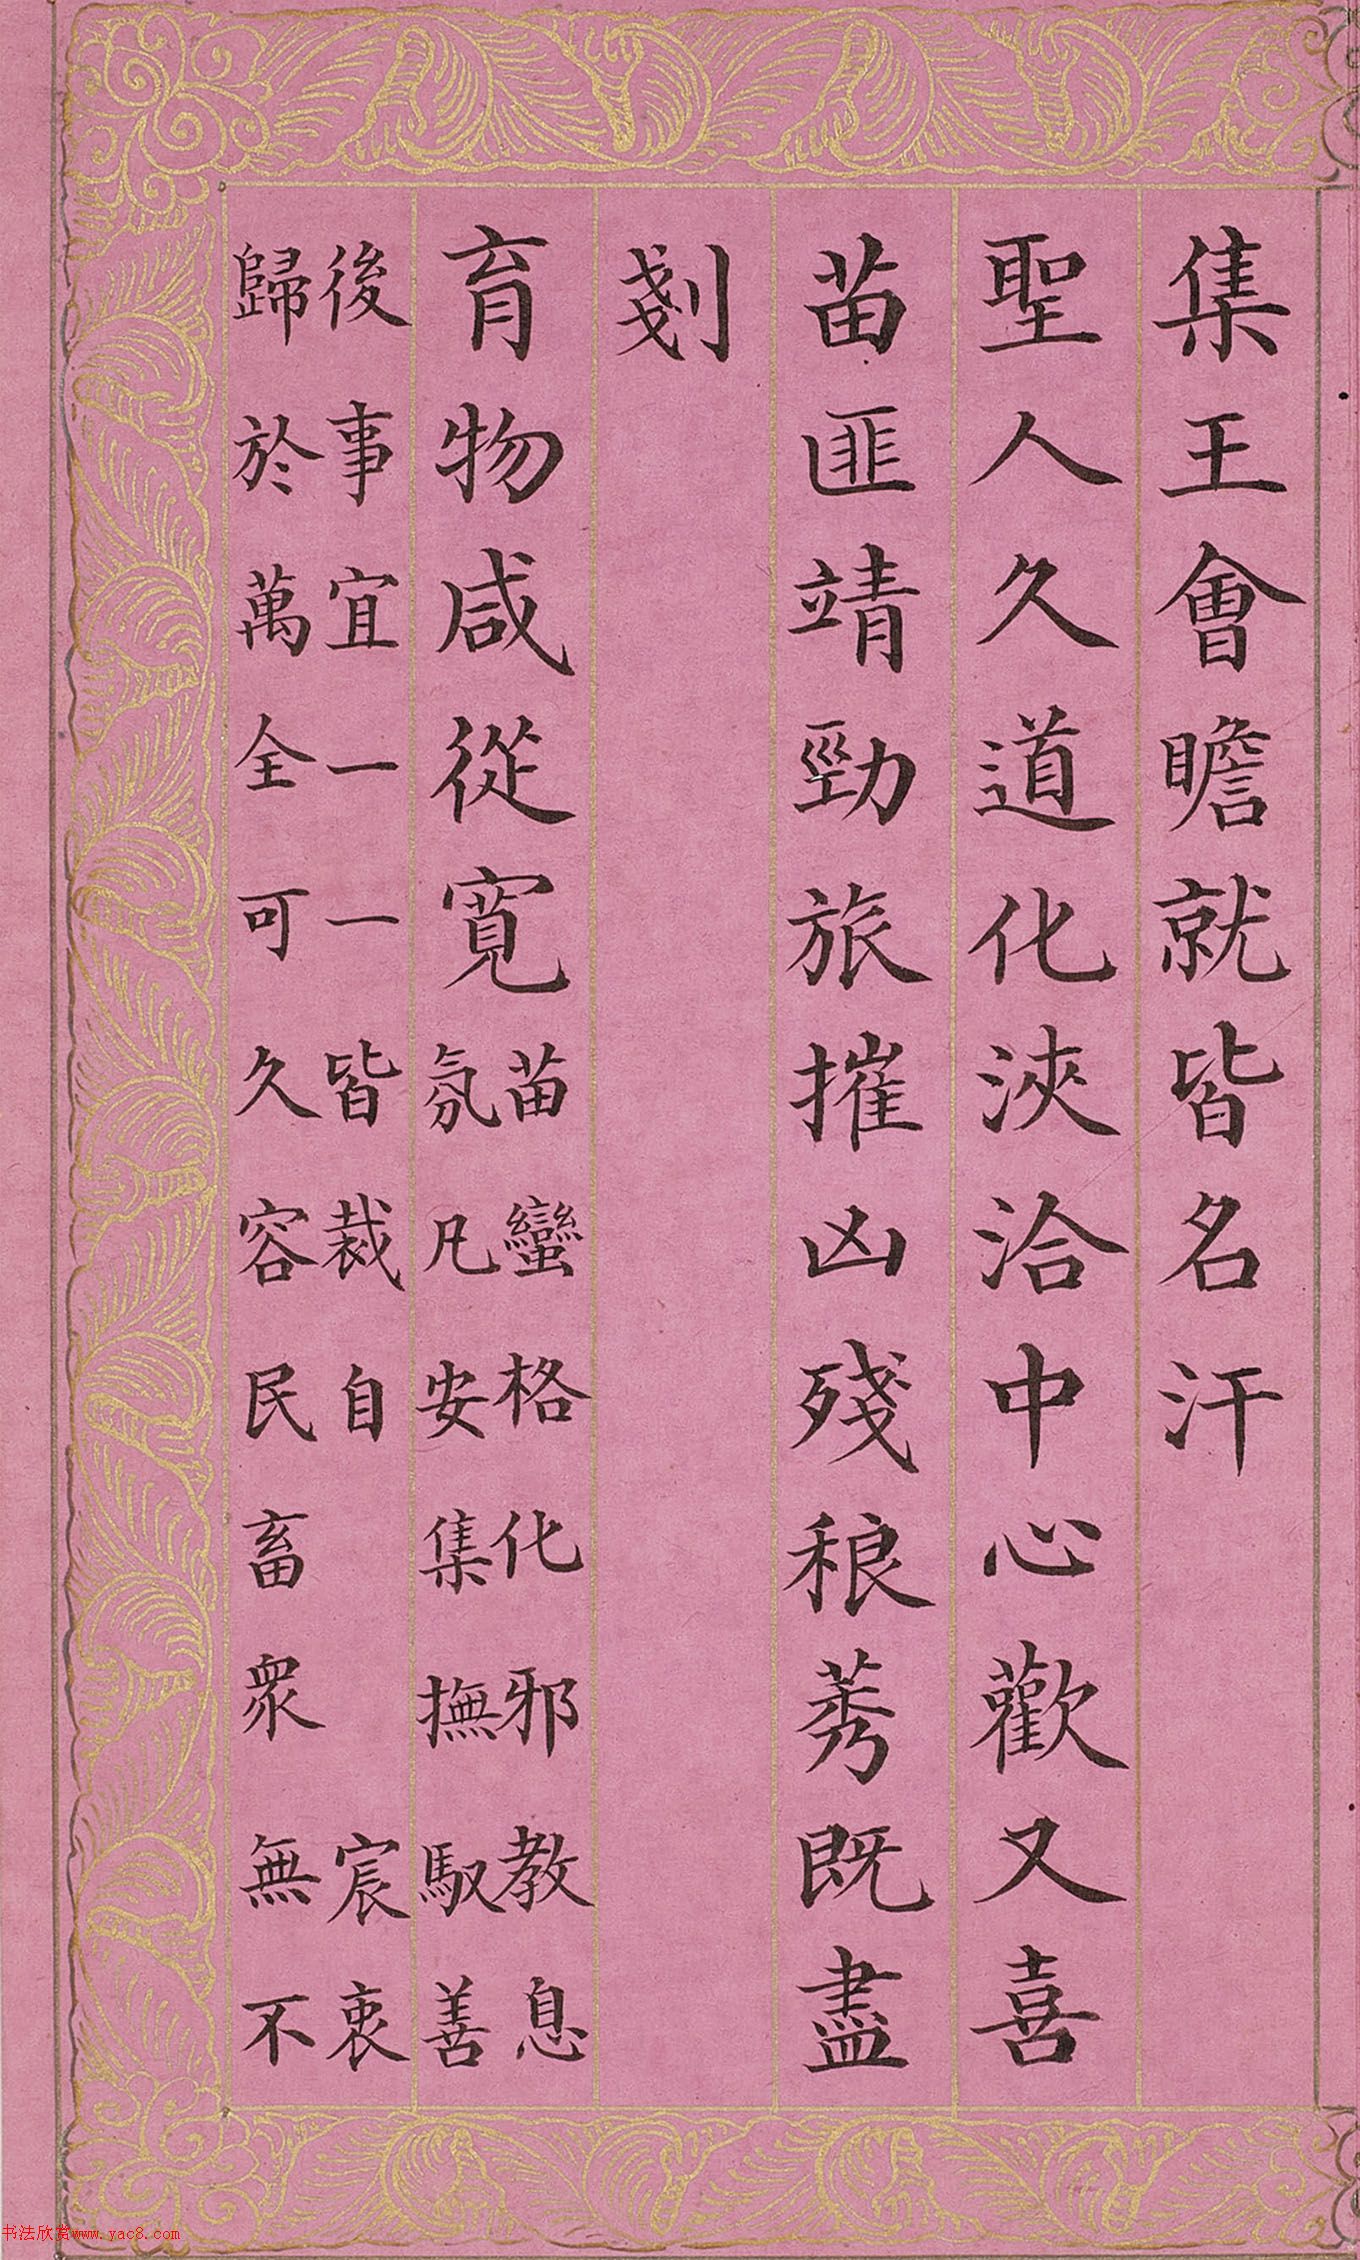 集王會瞻就皆名汗
聖人久道化浹洽中心歡又喜
苗匪靖勁旅摧凶殘稂莠既盡
剗
育物咸從寬苗蠻格化邪教息
氛凡安集撫馭善
後事宜一一皆裁自
宸衷
歸於萬全可久容民畜衆無不
书法欣赏www.yac8.com